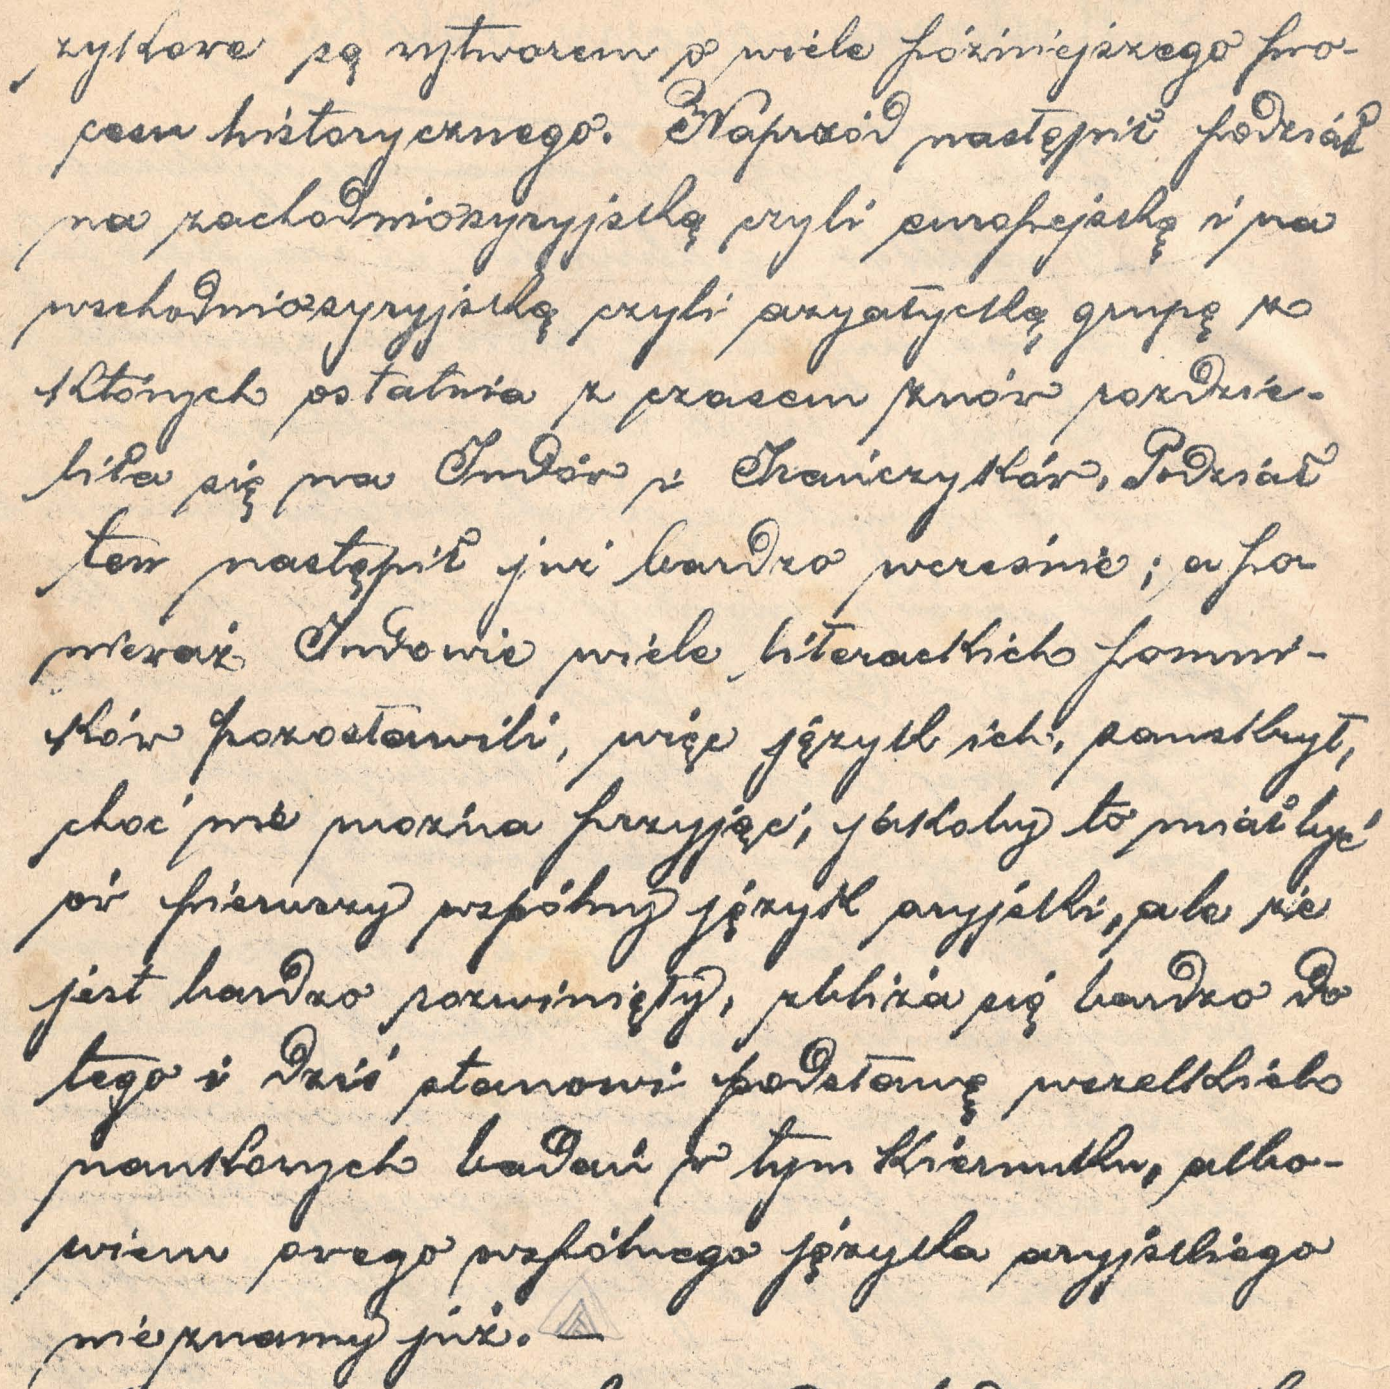 zykowe są wytworem o wiele późniejszego pro-
cesu historycznego. Naprzód nastąpił podział
na zachodnioayryjską czyli europejską i na
wschodnioayryjską czyli azyatycką grupę z
których ostatnia z czasem znów rozdzie-
liła się na Indów i Irańczyków. Podział
ten nastąpił już bardzo wcześnie; a po-
nieważ Indowie wiele literackich pomni-
ków pozostawili, więc język ich, sanskryt,
choć nie można przyjąć, jakoby to miał być
ów pierwszy wspólny język aryjski, ale że
jest bardzo rozwinięty, zbliża się bardzo do
tego i dziś stanowi podstawę wszelkich
naukowych badań w tym kierunku, albo-
wiem owego wspólnego języka aryjskiego
nie znamy już. —